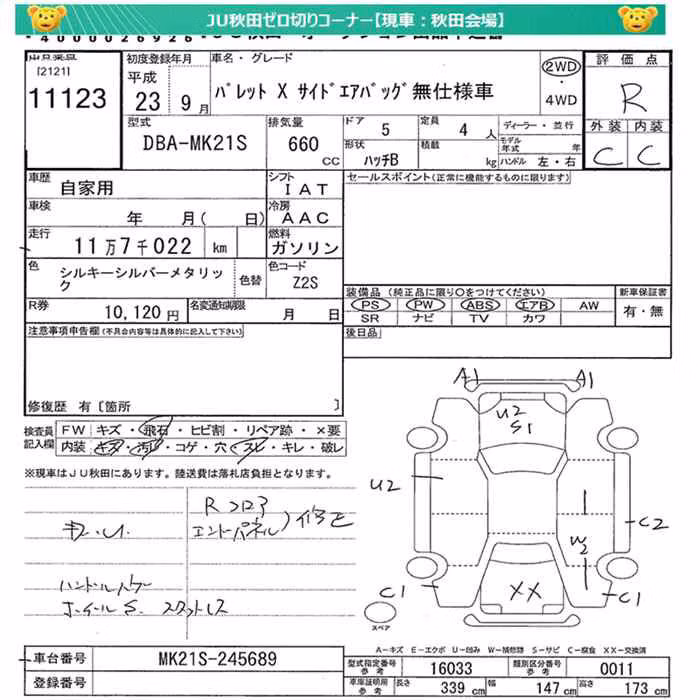 JU秋田ゼロ切りコーナー【現車：秋田会場】
[2121]
11123
初度登録年月
平成
23 9月
車名・グレード
パレット X サイドエアバッグ 無仕様車
2WD
4WD
評価点
R
外装 内装
C C
型式
DBA-MK21S
排気量
660
CC
ドア 5
定員 4 人
形状 ハッチB
積載 kg
ディーラー・並行
モデル年式 年
ハンドル 左・右
車歴 自家用
シフト IAT
セールスポイント(正常に機能するものに限ります)
車検 年 月( 日)
冷房 AAC
走行 11万7千022 km
燃料 ガソリン
色 シルキーシルバーメタリック
色替
色コード Z2S
R券 10,120円
名変通知期限 月 日
装備品 (純正品に限り○をつけてください)
新車保証書
PS PW ABS エアB AW
有・無
SR ナビ TV カワ
注意事項申告欄(不具合内容等は具体的に記入して下さい)
後日品
修復歴 有〔箇所 〕
検査員記入欄
FW キズ・飛石・ヒビ割・リペア跡・×要
内装 キズ・汚れ・コゲ・穴・スレ・キレ・破レ
※現車はJU秋田にあります。陸送費は落札店負担となります。
Rフロア
エンドパネル)修正
A1 A1
U2
S1
U2
C2
W2
C1 XX C1
スペア
A-キズ E-エクボ U-凹み W-補修跡 S-サビ C-腐食 XX-交換済
車台番号 MK21S-245689
型式指定番号 参考 16033
類別区分番号 参考 0011
登録番号
車庫証明用 参考 長さ 339 cm 幅 147 cm 高さ 173 cm